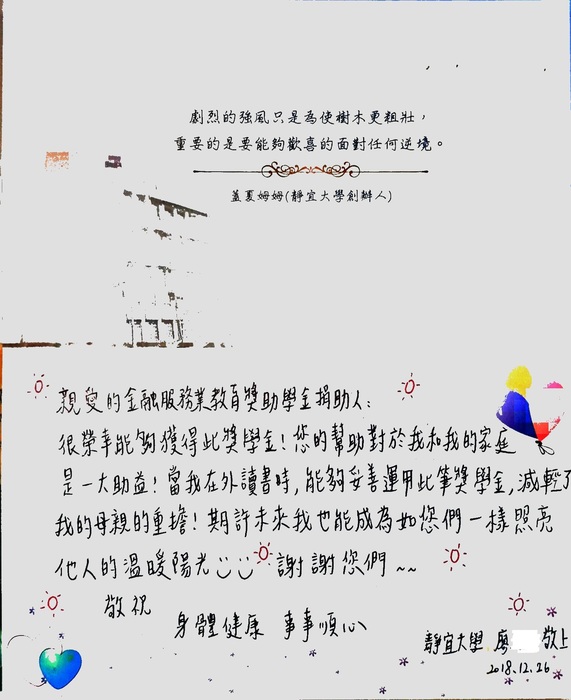 劇烈的強風只是為使樹木更粗壯，
重要的是要能夠歡喜的面對任何逆境。
蓋夏姆姆(靜宜大學創辦人)
親愛的金融服務業教育獎助學金捐助人：
很榮幸能夠獲得此獎學金！您的幫助對於我和我的家庭
是一大助益！當我在外讀書時，能夠妥善運用此筆獎學金，減輕了
我的母親的重擔！期許未來我也能成為如您們一樣照亮
他人的溫暖陽光 謝謝您們~~
敬祝
身體健康 事事順心
靜宜大學 廖 敬上
2018.12.26